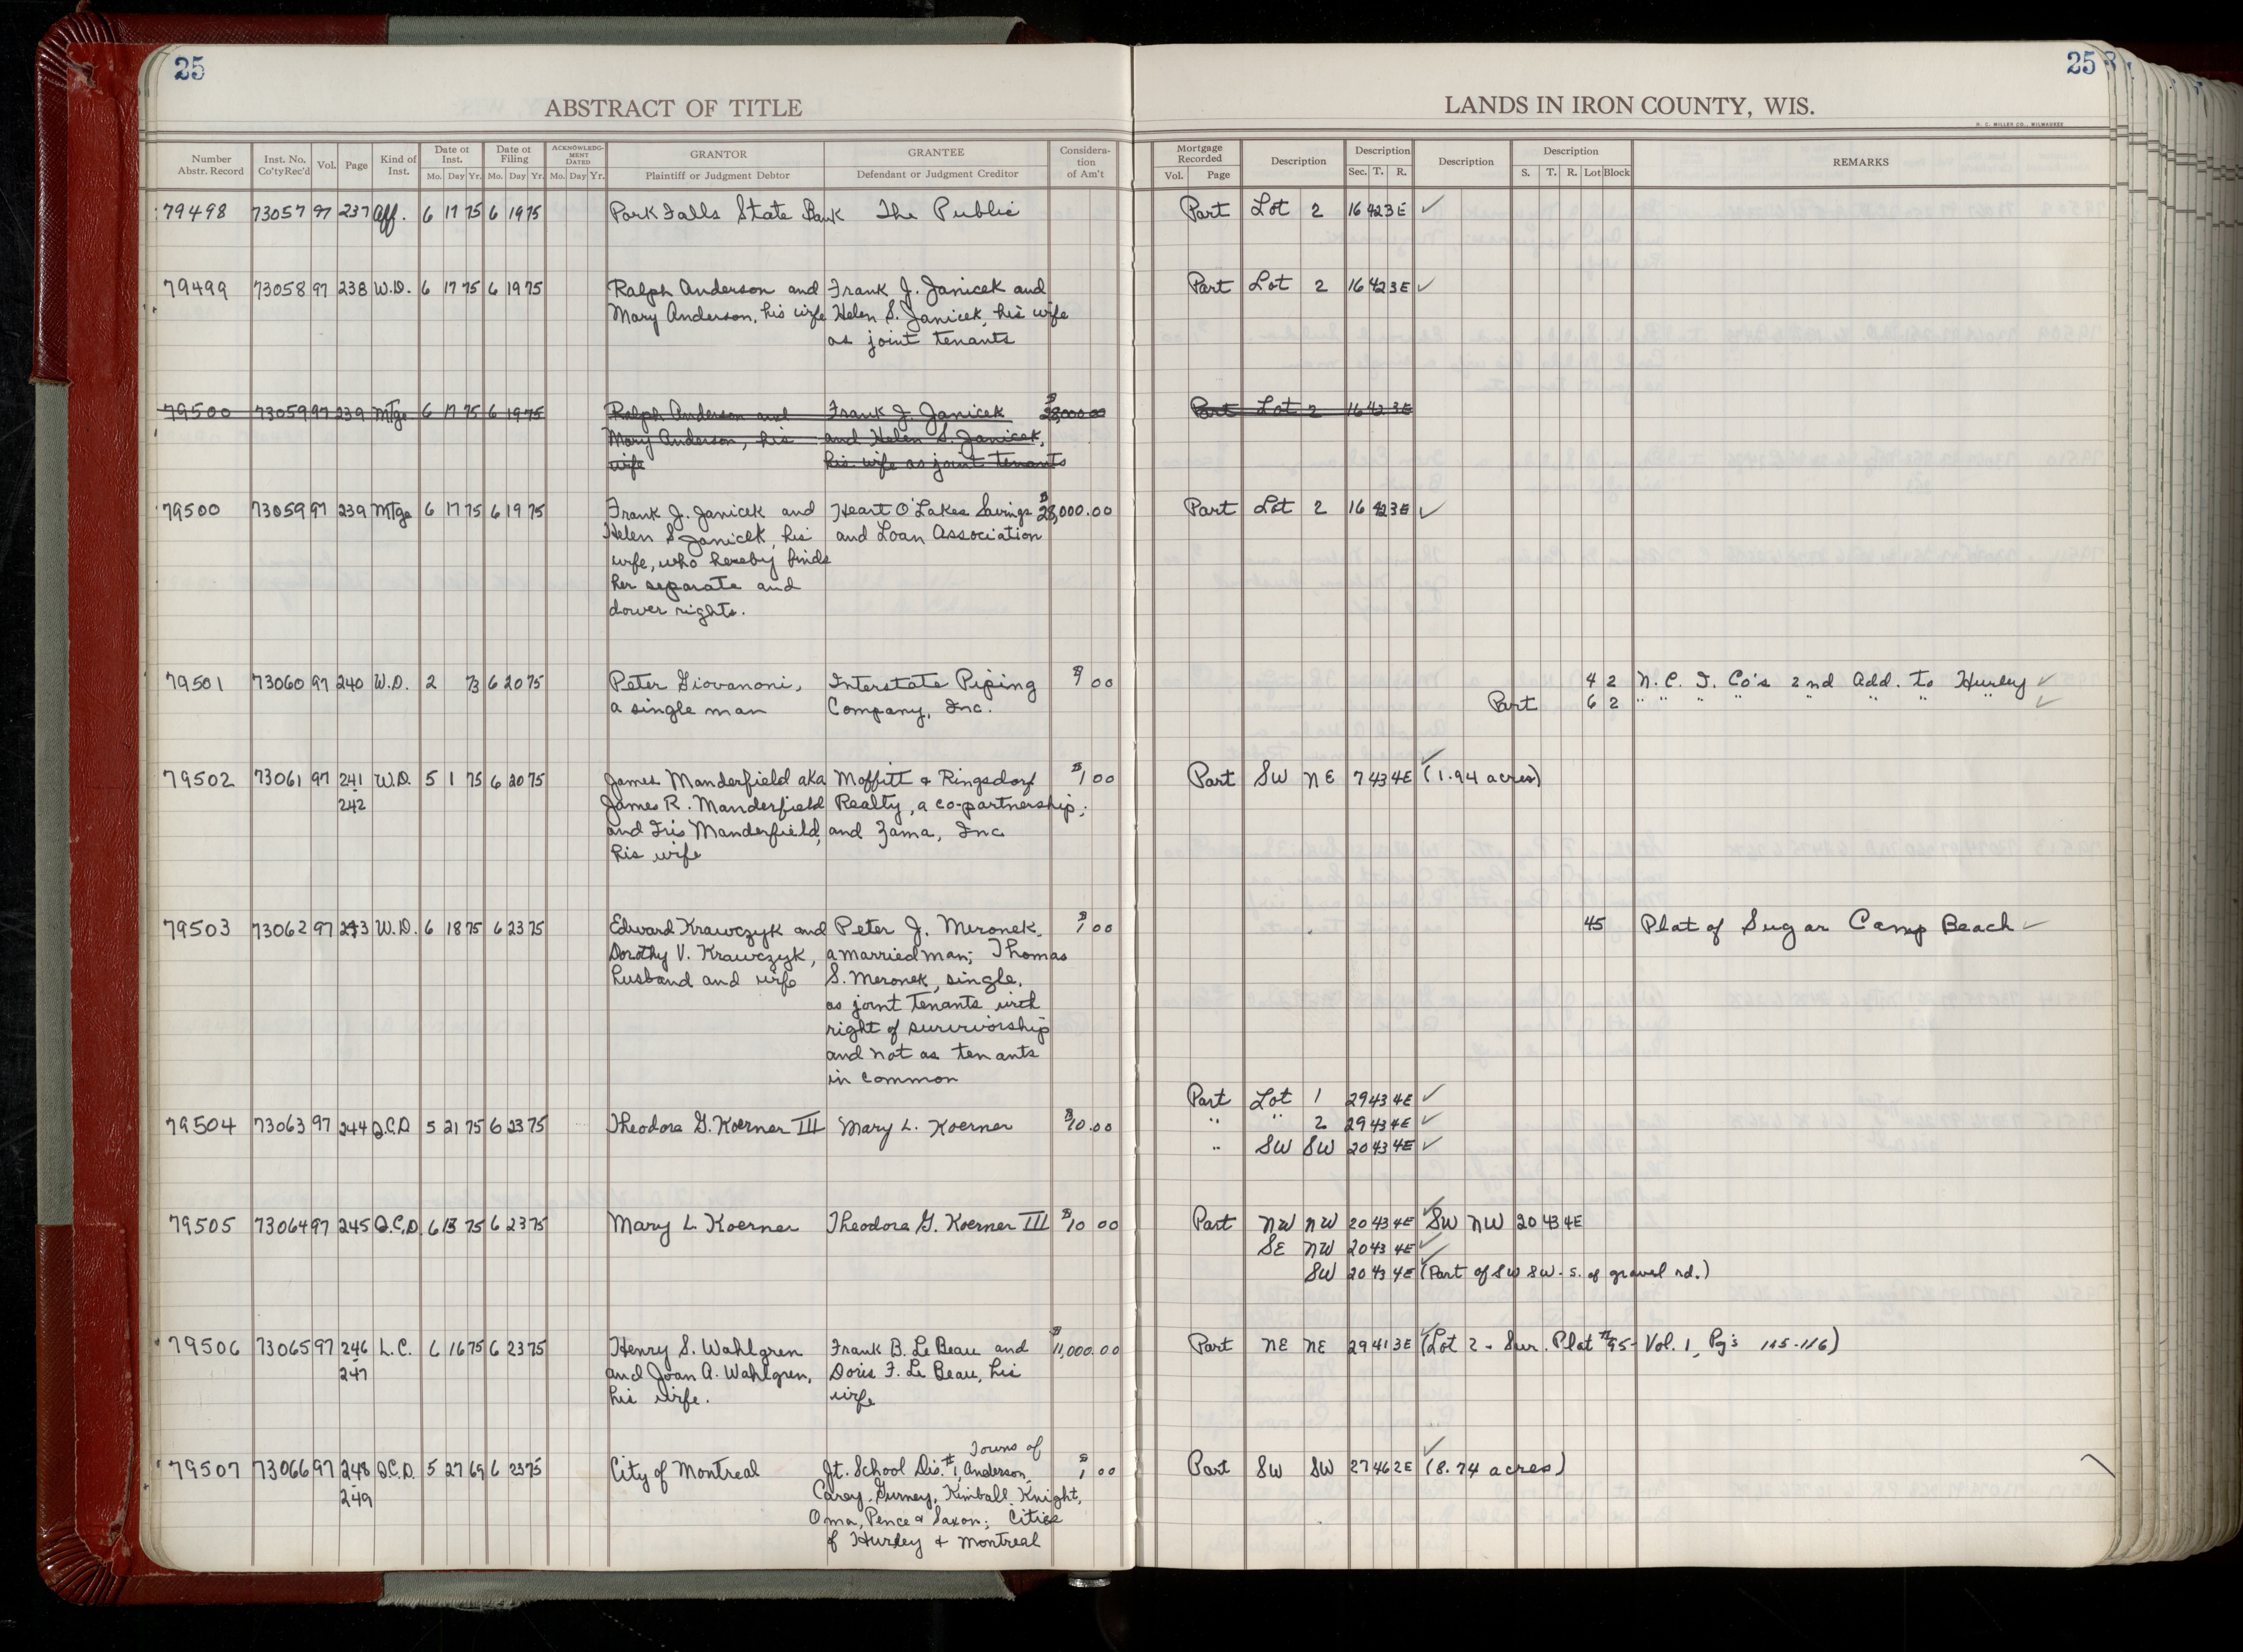 25
25
ABSTRACT OF TITLE
LANDS IN IRON COUNTY, WIS.
H. C. MILLER CO., MILWAUKEE
Number Abstr. Record | Inst. No. Co'ty Rec'd | Vol. | Page | Kind of Inst. | Date of Inst. Mo. Day Yr. | Date of Filing Mo. Day Yr. | ACKNOWLEDGMENT DATED Mo. Day Yr. | GRANTOR Plaintiff or Judgment Debtor | GRANTEE Defendant or Judgment Creditor | Consideration of Am't | Mortgage Recorded Vol. Page | Description | Description Sec. T. R. | Description | Description S. T. R. Lot Block | REMARKS
79498 73057 97 237 Aff. 6 17 75 6 19 75 Park Falls State Bank The Public Part Lot 2 16 42 3E ✓
79499 73058 97 238 W.D. 6 17 75 6 19 75 Ralph Anderson and Frank J. Janicek and Part Lot 2 16 42 3E ✓
Mary Anderson, his wife Helen S. Janicek, his wife
as joint tenants
79500 73059 97 239 Mtge 6 17 75 6 19 75 Ralph Anderson and Frank J. Janicek $28,000.00 Part Lot 2 16 42 3E
Mary Anderson, his and Helen S. Janicek,
wife his wife as joint tenants
79500 73059 97 239 Mtge 6 17 75 6 19 75 Frank J. Janicek and Heart O'Lakes Savings $28,000.00 Part Lot 2 16 42 3E ✓
Helen S. Janicek, his and Loan Association
wife, who hereby binds
her separate and
dower rights.
79501 73060 97 240 W.D. 2 73 6 20 75 Peter Giovanoni, Interstate Piping $1 00 4 2 N. C. I. Co's 2nd Add. to Hurley ✓
a single man Company, Inc. Part 6 2 " " " " " " " ✓
79502 73061 97 241 W.D. 5 1 75 6 20 75 James Manderfield aka Moffitt & Ringsdorf $1 00 Part SW NE 7 43 4E ✓ (1.94 acres)
- 242 James R. Manderfield Realty, a co-partnership;
and Iris Manderfield, and Zama, Inc
his wife
79503 73062 97 243 W.D. 6 18 75 6 23 75 Edward Krawczyk and Peter J. Meronek, $1 00 45 Plat of Sugar Camp Beach ✓
Dorothy V. Krawczyk, a married man; Thomas
husband and wife S. Meronek, single,
as joint tenants with
right of survivorship
and not as tenants
in common
Part Lot 1 29 43 4E ✓
79504 73063 97 244 Q.C.D 5 21 75 6 23 75 Theodore G. Koerner III Mary L. Koerner $10.00 " " 2 29 43 4E ✓
" SW SW 20 43 4E ✓
79505 73064 97 245 Q.C.D. 6 13 75 6 23 75 Mary L. Koerner Theodore G. Koerner III $10 00 Part NW NW 20 43 4E ✓ SW NW 20 43 4E
SE NW 20 43 4E ✓
SW 20 43 4E ✓ (Part of SW SW - S. of gravel rd.)
79506 73065 97 246 L.C. 6 16 75 6 23 75 Henry S. Wahlgren Frank B. Le Beau and $11,000.00 Part NE NE 29 41 3E ✓ (Lot 2 - Sur. Plat #95- Vol. 1, Pg's 115-116)
- 247 and Joan A. Wahlgren, Doris F. Le Beau, his
his wife. wife
Towns of
79507 73066 97 248 Q.C.D. 5 27 69 6 23 75 City of Montreal Jt. School Dis. #1, Anderson, $1 00 Part SW SW 27 46 2E ✓ (8.74 acres)
- 249 Carey, Gurney, Kimball, Knight,
Oma, Pence & Saxon; Cities
of Hurley & Montreal